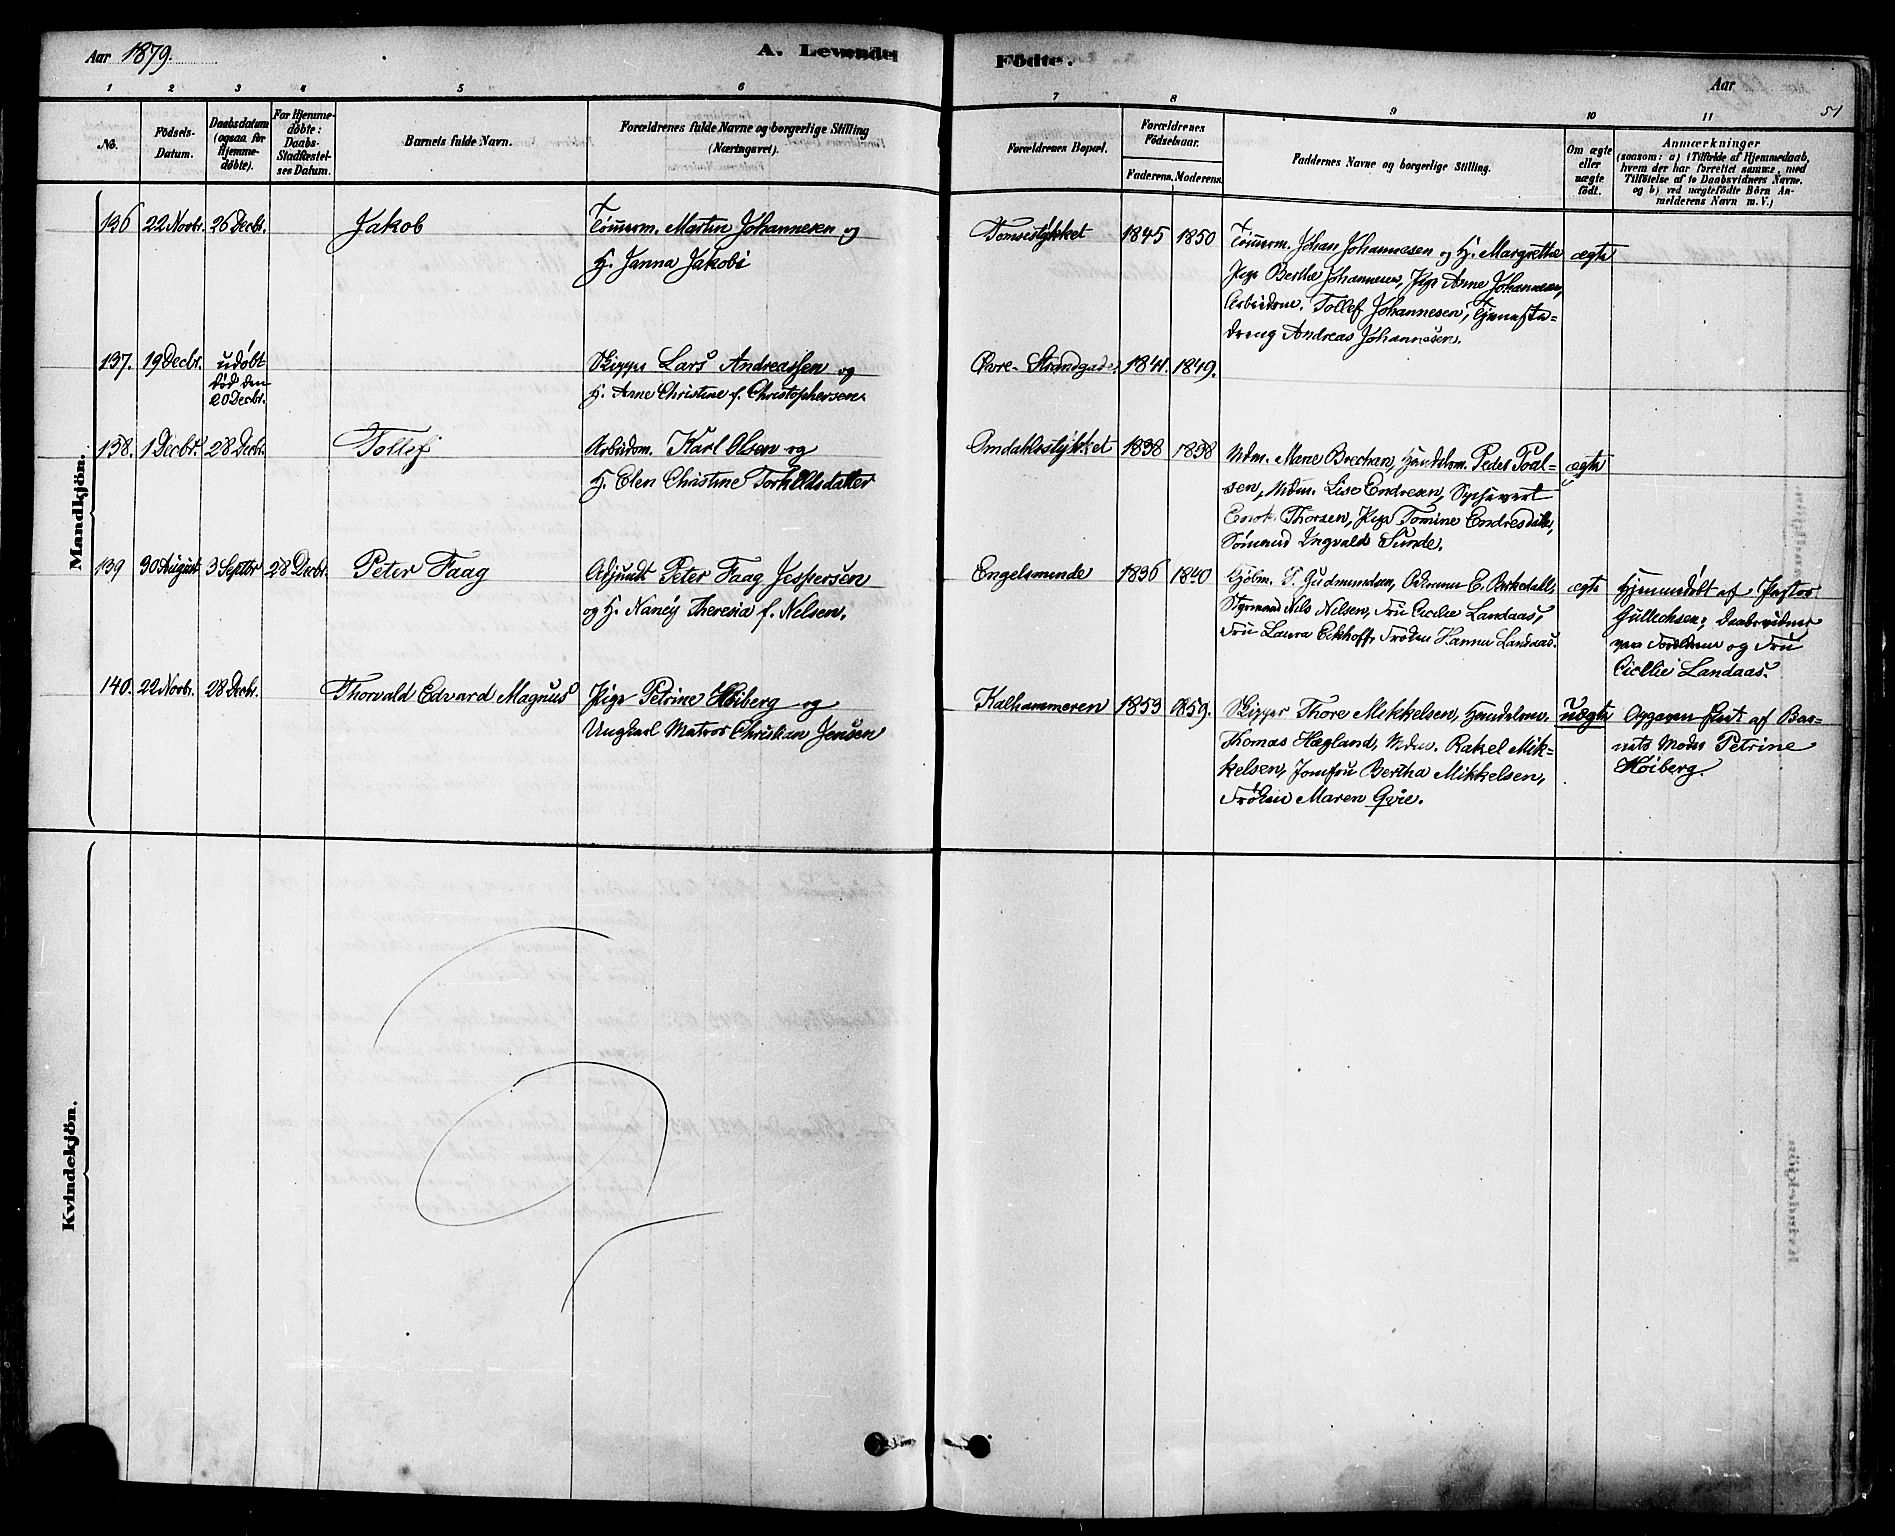 Aar 1879.
A. Levende
Födte.
Aar
51
1 2 3 4 5 6 7 8 9 10 11
No.
Födsels-
Datum.
Daabsdatum
(ogsaa for
Hjemme-
döbte).
For Hjemme-
døbte:
Daabs-
Stadfæstel-
ses Datum.
Barnets fulde Navn.
Forældrenes fulde Navne og borgerlige Stilling
(Næringsvei).
Forældrenes Bopæl.
Forældrenes
Födselsaar.
Faderens. Moderens.
Faddernes Navne og borgerlige Stilling.
Om ægte
eller
uægte
födt.
Anmærkninger
(saasom: a) i Tilfælde af Hjemmedaab,
hvem der har forrettet samme, med
Tilföielse af to Daabsvidners Navne,
og b) ved uægtefödte Börn An-
melderens Navn m. V.)
Mandkjön.
136 22 Novbr. 26 Decbr. Jakob
Tömmerm. Martin Johannesen og
H. Janna Jakobi
Tomsestykket 1845 1850
Tömmerm. Johan Johannesen og H. Margrethe
Pige Berthe Johannesen, Pige Anne Johannesen,
Arbeidsm. Tollef Johannesen, Tjeneste-
dreng Andreas Johannesen.
ægte
137. 19 Decbr. udøbt
død den
20 Decbr.
Skipper Lars Andreassen og
H. Anne Christine f. Christophersen.
Øvre- Strandgade. 1841. 1849.
138. 1 Decbr. 28 Decbr. Tollef
Arbeidsm. Karl Olsen og
H. Elen Christine Torkildsdatter
Omdahlsstykket 1838 1838
Mdm. Marie Brechan, Handelsm. Peder Poal-
sen, Mdm. Lise Endresen,
Thorsen, Pige Tomine Endresdatter,
Sömand Ingvald Sunde.
ægte
139 30 August 3 Septbr 28 Decbr. Peter Faag
Adjunct Peter Faag Jespersen
og H. Nancy Theresia f. Nelsen.
Engelsminde 1836 1840
Kjøbm. T. Gudmundsen, E. Berkedahl,
Styrmand Nils Nilsen, Fru Cecilie Landaas,
Fru Laura Eckhoff, Frøken Hanna Landaas.
ægte
Hjemmedøbt af Pastor
Gullichsen; Daabsvidner
var Forældrene og Fru
Cicilie Landaas.
140. 22 Novbr. 28 Decbr. Thorvald Edvard Magnus
Pige Petrine Høiberg og
Ungkarl Matros Christian Jensen
Kalhammeren 1853 1859.
Skipper Thore Mikkelsen, Handelsm.
Thomas Hægland, Mdm. Rakel Mik-
kelsen, Jomfru Bertha Mikkelsen,
Frøken Maren Qvie.
Uægte
Opgaven skeet af Bar-
nets Moder Petrine
Høiberg.
Kvindekjön.